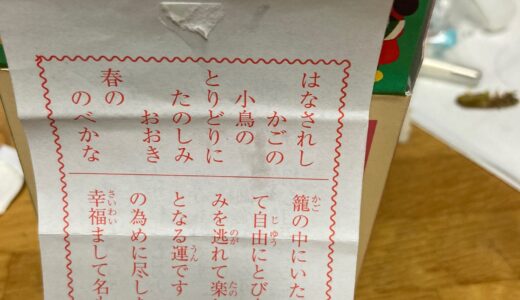 はなされし
かごの
小鳥の
とりどりに
たのしみ
おおき
春の
のべかな
かご
籠の中にいた
じゆう
て自由にとび
のが たの
みを逃れて楽
うん
となる運です
の為めに尽した
さいわい
幸福まして名